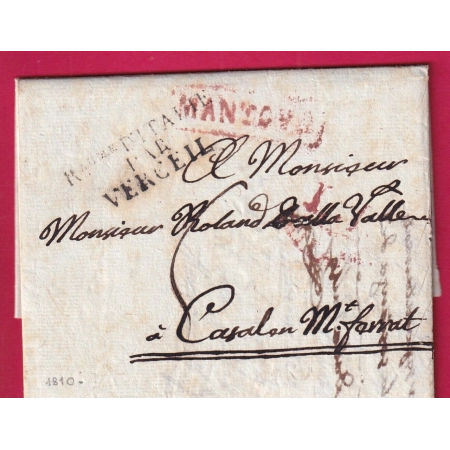 MANTOVA
R.me D'ITALIE
PAR
VERCEIL
A Monsieur
Monsieur Roland Della Valle
6
à Casal en Mt. ferrat
1810.